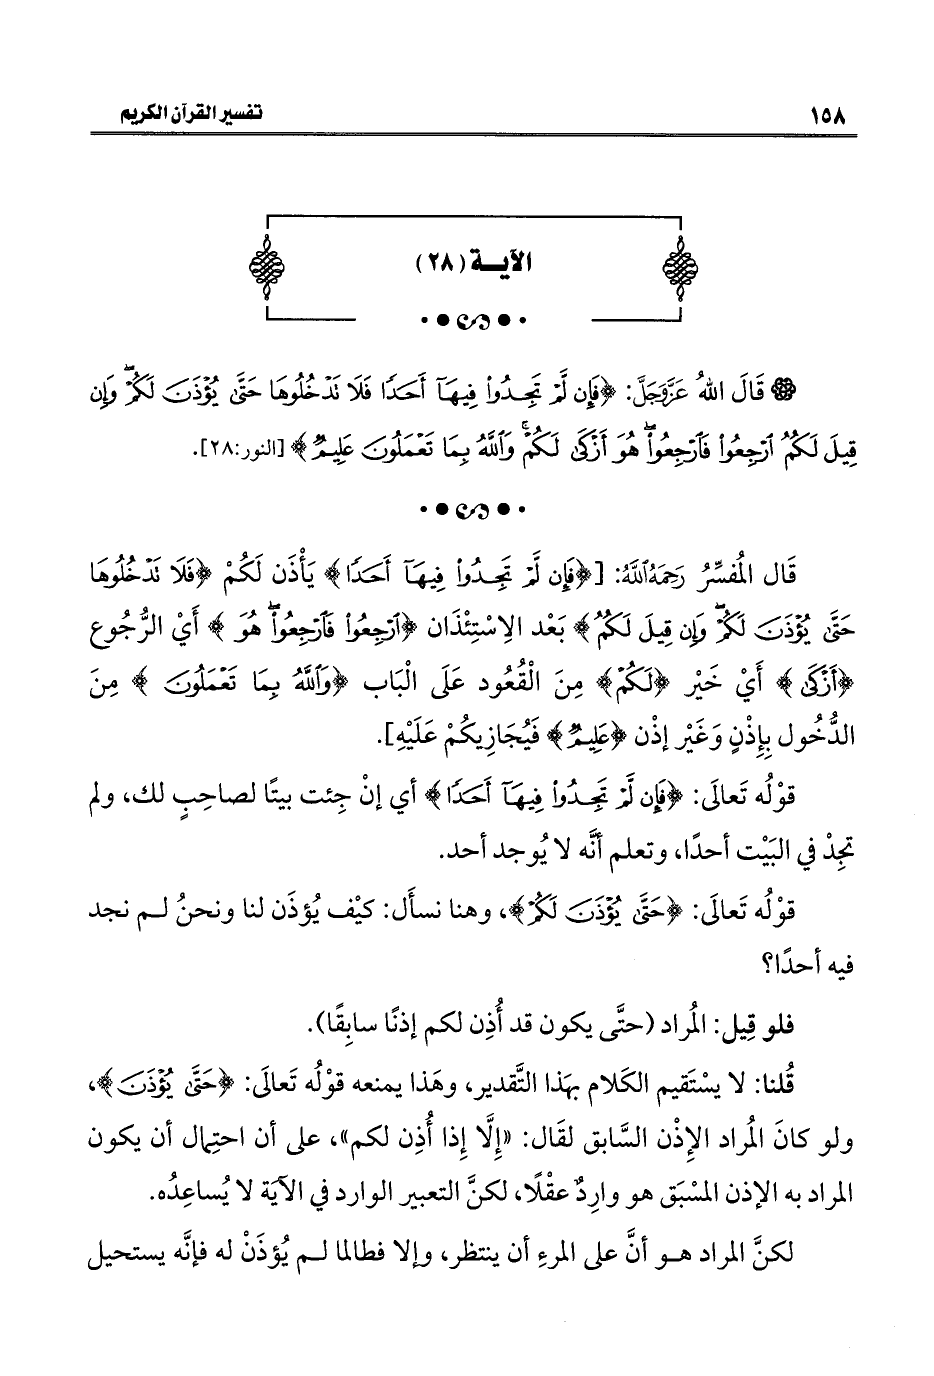 ١٥٨ تفسير القرآن الكريم
الآيــة (٢٨)
قَالَ اللهُ عَزَّوَجَلَّ: ﴿فَإِن لَّمْ تَجِدُوا۟ فِيهَآ أَحَدًا فَلَا تَدْخُلُوهَا حَتَّىٰ يُؤْذَنَ لَكُمْ ۖ وَإِن
قِيلَ لَكُمُ ٱرْجِعُوا۟ فَٱرْجِعُوا۟ ۖ هُوَ أَزْكَىٰ لَكُمْ ۚ وَٱللَّهُ بِمَا تَعْمَلُونَ عَلِيمٌ﴾ [النور:٢٨].
قَال المُفسِّرُ رَحِمَهُ ٱللَّهُ: [﴿فَإِن لَّمْ تَجِدُوا۟ فِيهَآ أَحَدًا﴾ يَأْذَن لَكُمْ ﴿فَلَا تَدْخُلُوهَا
حَتَّىٰ يُؤْذَنَ لَكُمْ ۖ وَإِن قِيلَ لَكُمُ﴾ بَعْد الِاسْتِئْذَان ﴿ٱرْجِعُوا۟ فَٱرْجِعُوا۟ ۖ هُوَ﴾ أَيْ الرُّجُوع
﴿أَزْكَىٰ﴾ أَيْ خَيْر ﴿لَكُمْ﴾ مِنَ الْقُعُود عَلَى الْبَاب ﴿وَٱللَّهُ بِمَا تَعْمَلُونَ﴾ مِنَ
الدُّخُول بِإِذْنٍ وَغَيْر إِذْن ﴿عَلِيمٌ﴾ فَيُجَازِيكُمْ عَلَيْهِ].
قوْلُه تَعالَى: ﴿فَإِن لَّمْ تَجِدُوا۟ فِيهَآ أَحَدًا﴾ أي إنْ جِئت بيتًا لصاحِبٍ لك، ولم
تجِدْ في البَيْت أحدًا، وتعلم أنَّه لا يُوجد أحد.
قوْلُه تَعالَى: ﴿حَتَّىٰ يُؤْذَنَ لَكُمْ﴾، وهنا نسأَل: كيْف يُؤذَن لنا ونحنُ لـم نجد
فيه أحدًا؟
فلو قِيل: المُراد (حتَّى يكون قد أُذِن لكم إذنًا سابِقًا).
قُلنا: لا يسْتَقيم الكَلام بهَذا التَّقدير، وهَذا يمنعه قوْلُه تَعالَى: ﴿حَتَّىٰ يُؤْذَنَ﴾،
ولو كانَ المُراد الإِذْن السَّابق لقَال: «إِلَّا إذا أُذِن لكم»، على أن احتِمال أن يكون
المراد به الإذن المسْبَق هو وارِدٌ عقْلًا، لكنَّ التعبير الوارد في الآيَة لا يُساعِدُه.
لكنَّ المراد هـو أنَّ على المرءِ أن ينتظر، وإلا فطالما لـم يُؤذَنْ له فإنَّه يستحيل